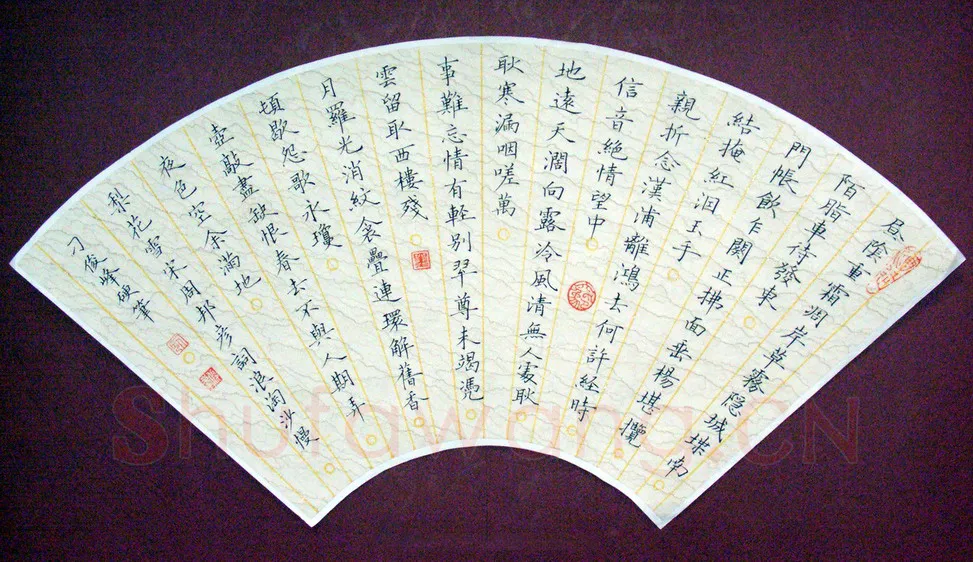 昼陰重霜凋岸草霧隐城堞南
陌脂車待發東
門帳飲乍闋正拂面垂楊堪攬
結掩紅泪玉手
親折念漢浦離鴻去何許経時
信音絕情望中
地遠天濶向露冷風清無人處耿
耿寒漏咽嗟萬
事難忘情有軽別翠尊未竭憑
雲留取西樓殘
月羅光消紋衾疊連環解舊香
頓歇怨歌永瓊
壺敲盡缺恨春去不與人期弄
夜色空余滿地
梨花雪宋周邦彥詞浪淘沙慢
刁俊峰硬筆
Shufawang.CN